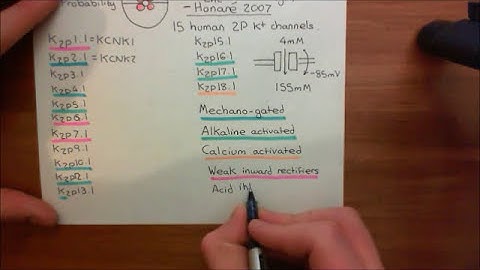 Probability
- Honare 2007
15 human 2P K+ channels.
K2p1.1 = KCNK1
K2p2.1 = KCNK2
K2p3.1
K2p4.1
K2p5.1
K2p6.1
K2p7.1
K2p9.1
K2p10.1
K2p12.1
K2p13.1
K2p15.1
K2p16.1
K2p17.1
K2p18.1
4mM
-85mV
155mM
Mechano-gated
Alkaline activated
Calcium activated
Weak inward rectifiers
Acid ih